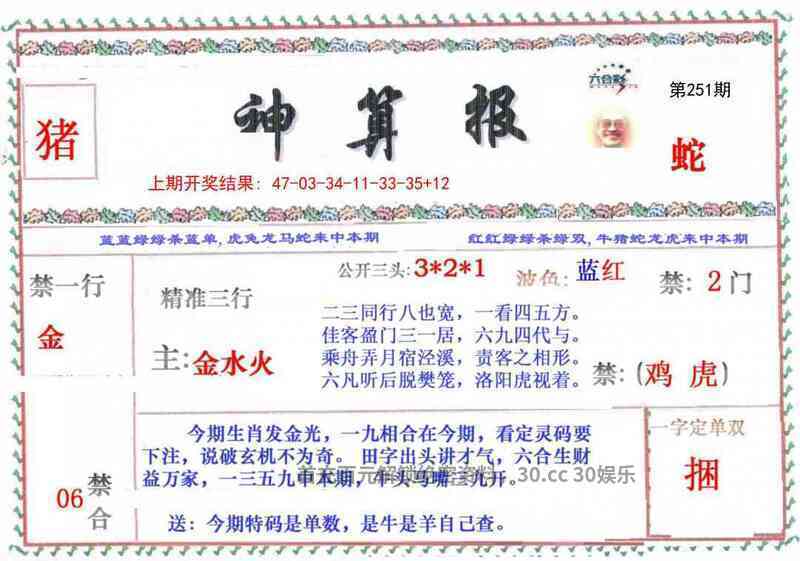 神算报
六合彩
第251期
猪
蛇
上期开奖结果: 47-03-34-11-33-35+12
蓝蓝绿绿杀蓝单, 虎兔龙马蛇来中本期
红红绿绿杀绿双, 牛猪蛇龙虎来中本期
禁一行
金
精准三行
主: 金水火
公开三头: 3*2*1
波色: 蓝红
禁: 2门
二三同行八也宽，一看四五方。
佳客盈门三一居，六九四代与。
乘舟弄月宿泾溪，责客之相形。
六凡听后脱樊笼，洛阳虎视着。
禁: (鸡 虎)
06
禁合
今期生肖发金光，一九相合在今期，看定灵码要
下注，说破玄机不为奇。 田字出头讲才气，六合生财
益万家，一三五九中本期，牛头马嘴三九开。
30.cc 30娱乐
送：今期特码是单数，是牛是羊自己查。
一字定单双
捆